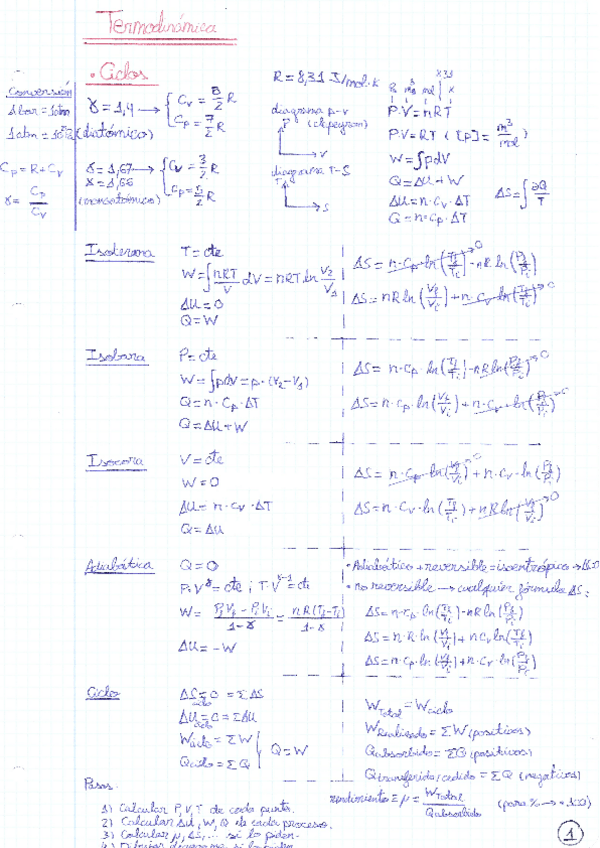 Termodinámica
• Ciclos
Conversión
1 bar = 10⁵ Pa
Cp = R + Cv
γ = Cp/Cv
γ = 1,4 → { Cv = 5/2 R
(diatómico) Cp = 7/2 R
γ = 1,67 → { Cv = 3/2 R
γ = 1,66 Cp = 5/2 R
(monoatómico)
R = 8,31 J/mol·K
diagrama p-v
(clapeyron)
P
V
diagrama T-S
T
S
P·V = nRT
P·V = RT ( [P] = m³/mol )
W = ∫pdV
Q = ΔU + W
ΔU = n·Cv·ΔT
Q = n·Cp·ΔT
ΔS = ∫ ∂Q/T
Isoterma
T = cte
W = ∫ nRT/V dV = nRT ln V2/V1
ΔU = 0
Q = W
ΔS = n·Cp·ln(Tf/Ti) - nR·ln(Pf/Pi)
ΔS = nR ln(Vf/Vi) + n·Cv·ln(Tf/Ti) → 0
Isobara
P = cte
W = ∫pdV = p·(V2-V1)
Q = n·Cp·ΔT
Q = ΔU + W
ΔS = n·Cp·ln(Tf/Ti) - nR ln(Pf/Pi) → 0
ΔS = n·Cp·ln(Vf/Vi) + n·Cv·ln(Pf/Pi) → 0
Isocora
V = cte
W = 0
ΔU = n·Cv·ΔT
Q = ΔU
ΔS = n·Cp·ln(Vf/Vi) → 0 + n·Cv·ln(Pf/Pi)
ΔS = n·Cv·ln(Tf/Ti) + nR ln(Vf/Vi) → 0
Adiabática
Q = 0
P·V^γ = cte ; T·V^γ-1 = cte
W = PfVf - PiVi / 1-γ = nR(Tf-Ti) / 1-γ
ΔU = -W
• Adiabático + reversible = isoentrópico → ΔS=0
• no reversible → cualquier fórmula ΔS:
ΔS = n·Cp·ln(Tf/Ti) - nR ln(Pf/Pi)
ΔS = n·R·ln(Vf/Vi) + nCv ln(Tf/Ti)
ΔS = n·Cp·ln(Vf/Vi) + n·Cv·ln(Pf/Pi)
Ciclo
ΔS ciclo = 0 = ΣΔS
ΔU ciclo = 0 = ΣΔU
Wciclo = ΣW
Qciclo = ΣQ
} Q = W
WTotal = Wciclo
WRealizado = ΣW (positivos)
Qabsorbido = ΣQ (positivos)
Qtransferido/cedido = ΣQ (negativos)
rendimiento = μ = WTotal / Qabsorbido (para % → ·100)
Pasos.
1) Calcular P, V, T de cada punto.
2) Calcular ΔU, W, Q de cada proceso.
3) Calcular μ, ΔS, ... si lo piden.
1